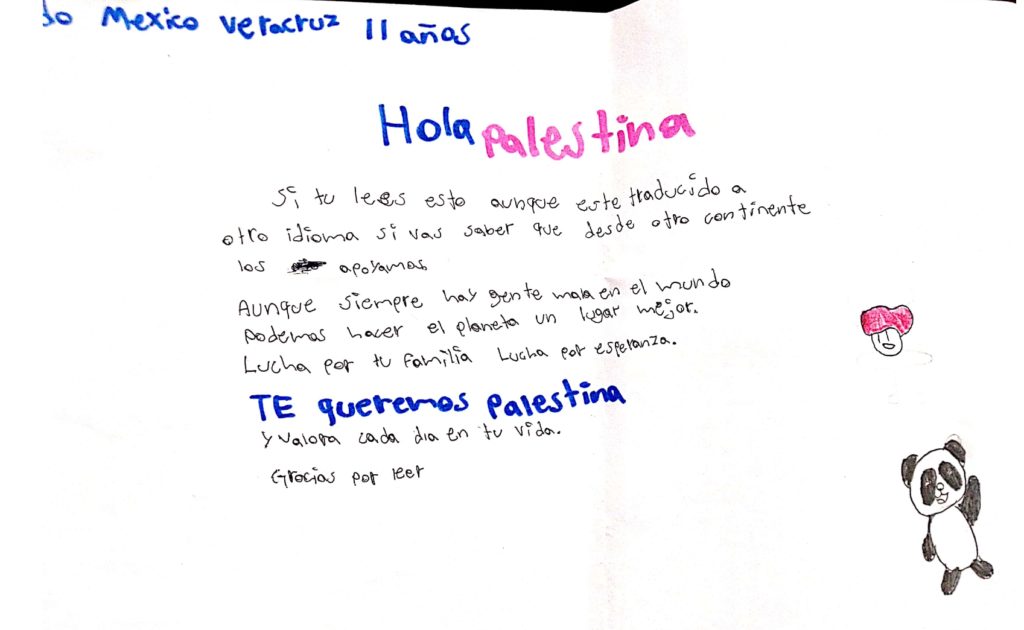 Mexico Veracruz 11 años
Hola Palestina
Si tu lees esto aunque este traducido a
otro idioma si vas saber que desde otro continente
los apoyamos.
Aunque siempre hay gente mala en el mundo
podemos hacer el planeta un lugar mejor.
Lucha por tu familia Lucha por esperanza.
TE queremos Palestina
y valora cada dia en tu vida.
Gracias por leer